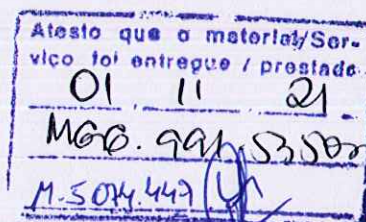 Atesto que o material/Ser-
viço foi entregue / prestado
01 11 21
MGG. 991.535
M-5074.449